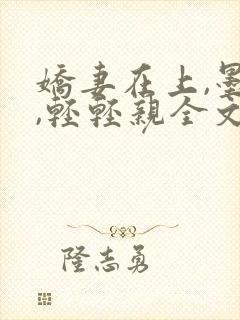 嬌妻在上,墨
,輕輕親全文
隆志勇